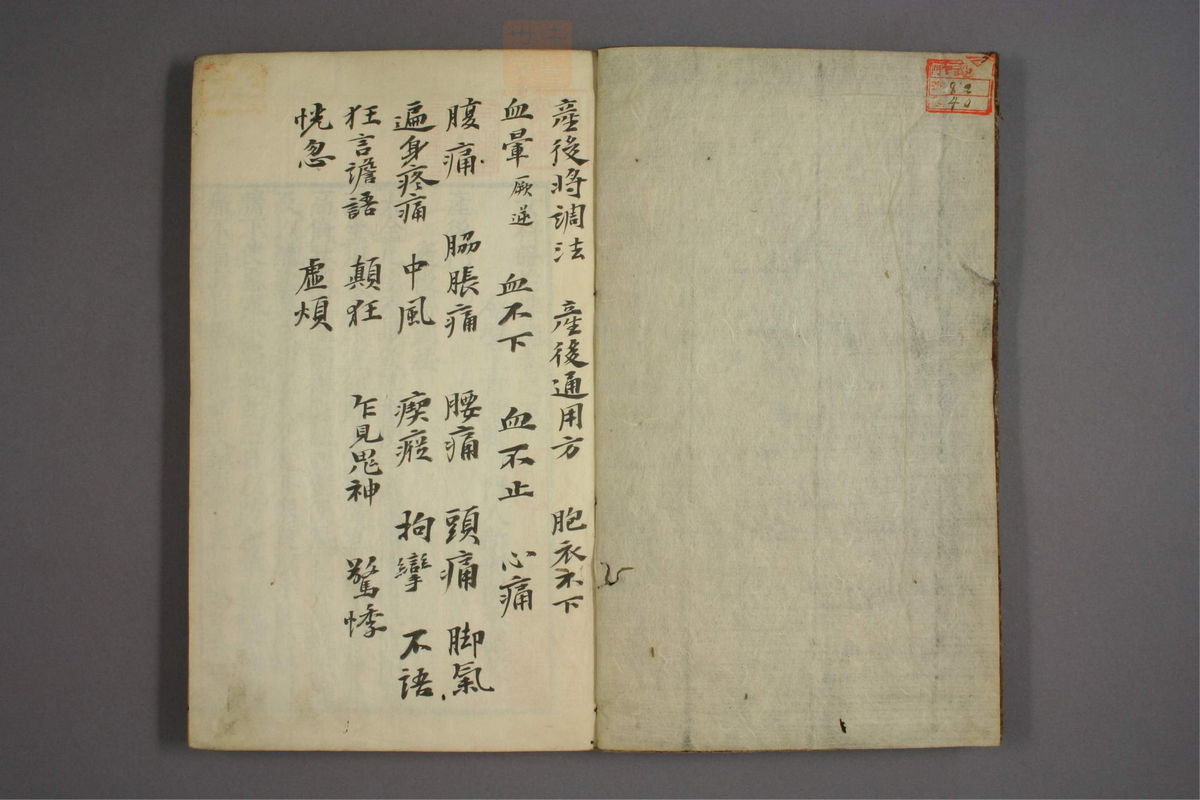 産後將調法　産後通用方　胞衣不下
血暈　厥逆　血不下　血不止　心痛
腹痛　脇脹痛　腰痛　頭痛　脚氣
遍身疼痛　中風　瘈瘲　拘攣　不語
狂言譫語　顛狂　乍見鬼神　驚悸
恍惚　虛煩
82
40